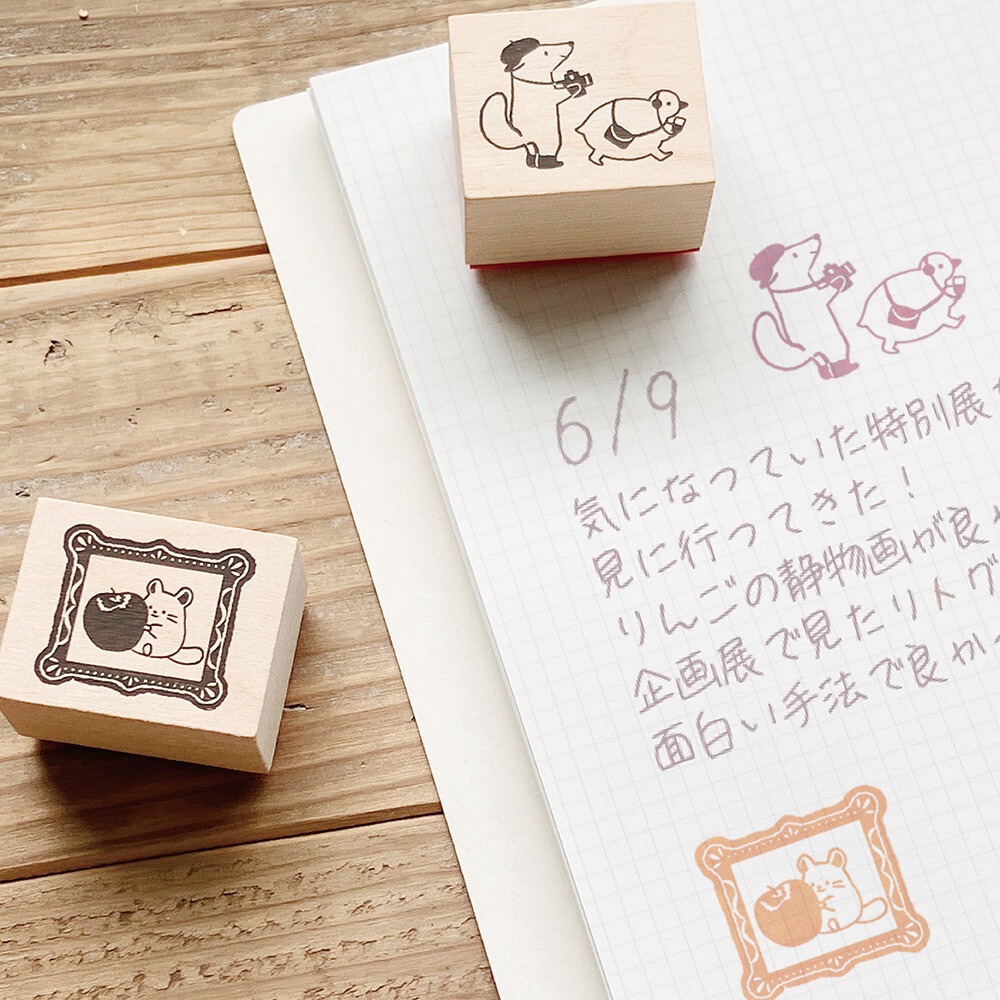 6/9
気になっていた特別展
見に行ってきた!
りんごの静物画が良
企画展で見たリトグ
面白い手法で良か